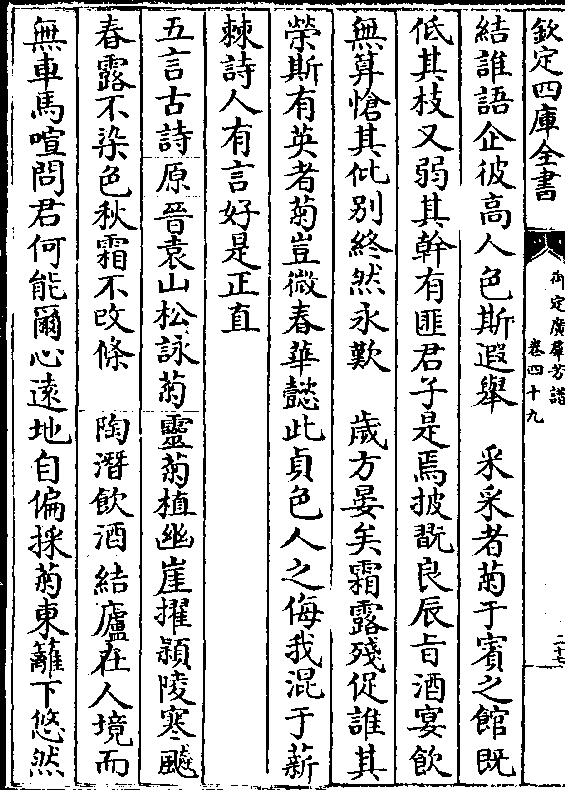 欽定四庫全書
御定廣羣芳譜
卷四十九
二十七
結誰語企彼高人色斯遐舉　采采者菊于賓之館既
低其枝又弱其幹有匪君子是焉披翫良辰旨酒宴飲
無算愴其仳別終然永歎　歲方晏矣霜露殘促誰其
榮斯有英者菊豈微春華懿此貞色人之侮我混于薪
棘詩人有言好是正直
五言古詩原晉袁山松詠菊靈菊植幽崖擢頴陵寒飈
春露不染色秋霜不改條　陶潛飲酒結廬在人境而
無車馬喧問君何能爾心遠地自偏採菊東籬下悠然